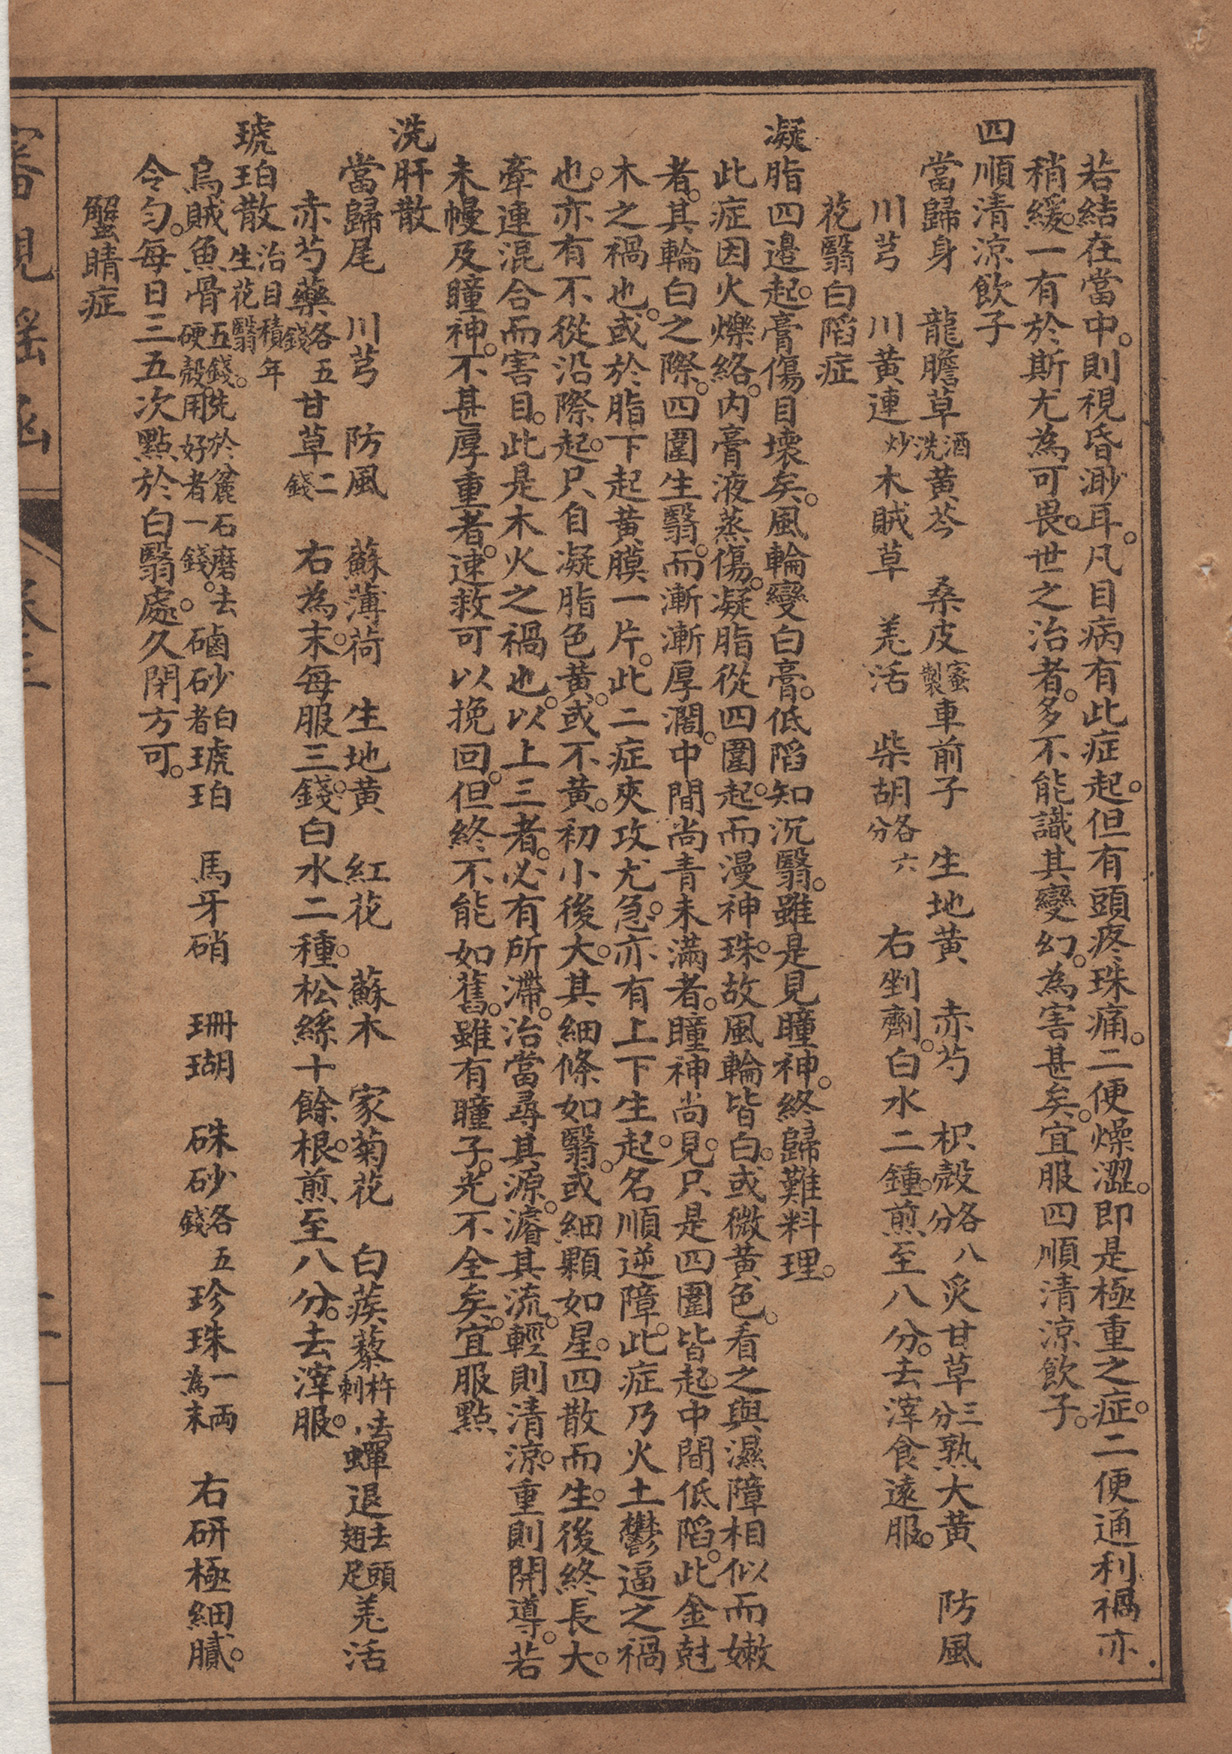 若結在當中。則視昏渺耳。凡目病有此症起。但有頭疼珠痛。二便燥澀。即是極重之症。二便通利。禍亦
稍緩。一有於斯尤為可畏。世之治者。多不能識其變幻。為害甚矣。宜服四順清涼飲子。
四順清涼飲子
當歸身　龍膽草酒洗　黄芩　桑皮蜜製　車前子　生地黄　赤芍　枳殼各八分　炙甘草三分　熟大黄　防風
川芎　川黄連炒　木賊草　羗活　柴胡各六分　右剉劑。白水二鍾。煎至八分。去滓食遠服。
花翳白陷症
凝脂四邊起。膏傷目壞矣。風輪變白膏。低陷知沉翳。雖是見瞳神。終歸難料理。
此症因火爍絡。内膏液蒸傷。凝脂從四圍起。而漫神珠。故風輪皆白。或微黄色。看之與濕障相似而嫩
者。其輪白之際。四圍生翳。而漸漸厚濶。中間尚青未滿者。瞳神尚見。只是四圍皆起。中間低陷。此金尅
木之禍也。或於脂下起黄膜一片。此二症夾攻尤急。亦有上下生起。名順逆障。此症乃火土鬱逼之禍
也。亦有不從沿際起。只自凝脂色黄。或不黄。初小後大。其細條如翳。或細顆如星。四散而生。後終長大。
牽連混合而害目。此是木火之禍也。以上三者。必有所滯。治當尋其源。濬其流。輕則清涼。重則開導。若
未幔及瞳神。不甚厚重者。速救可以挽回。但終不能如舊。雖有瞳子。光不全矣。宜服點
洗肝散
當歸尾　川芎　防風　蘇薄荷　生地黄　紅花　蘇木　家菊花　白蒺藜杵去刺　蟬退去頭翅足　羗活
赤芍藥各五錢　甘草二錢　右為末。每服三錢。白水二種。松絲十餘根。煎至八分。去滓服。
琥珀散治目積年生花翳
烏賊魚骨五錢。先於麄石磨去硬殼用好者一錢。　磠砂白者　琥珀　馬牙硝　珊瑚　硃砂各五錢　珍珠一兩為末　右研極細膩。
令勻。每日三五次點於白翳處。久閉方可。
蟹睛症